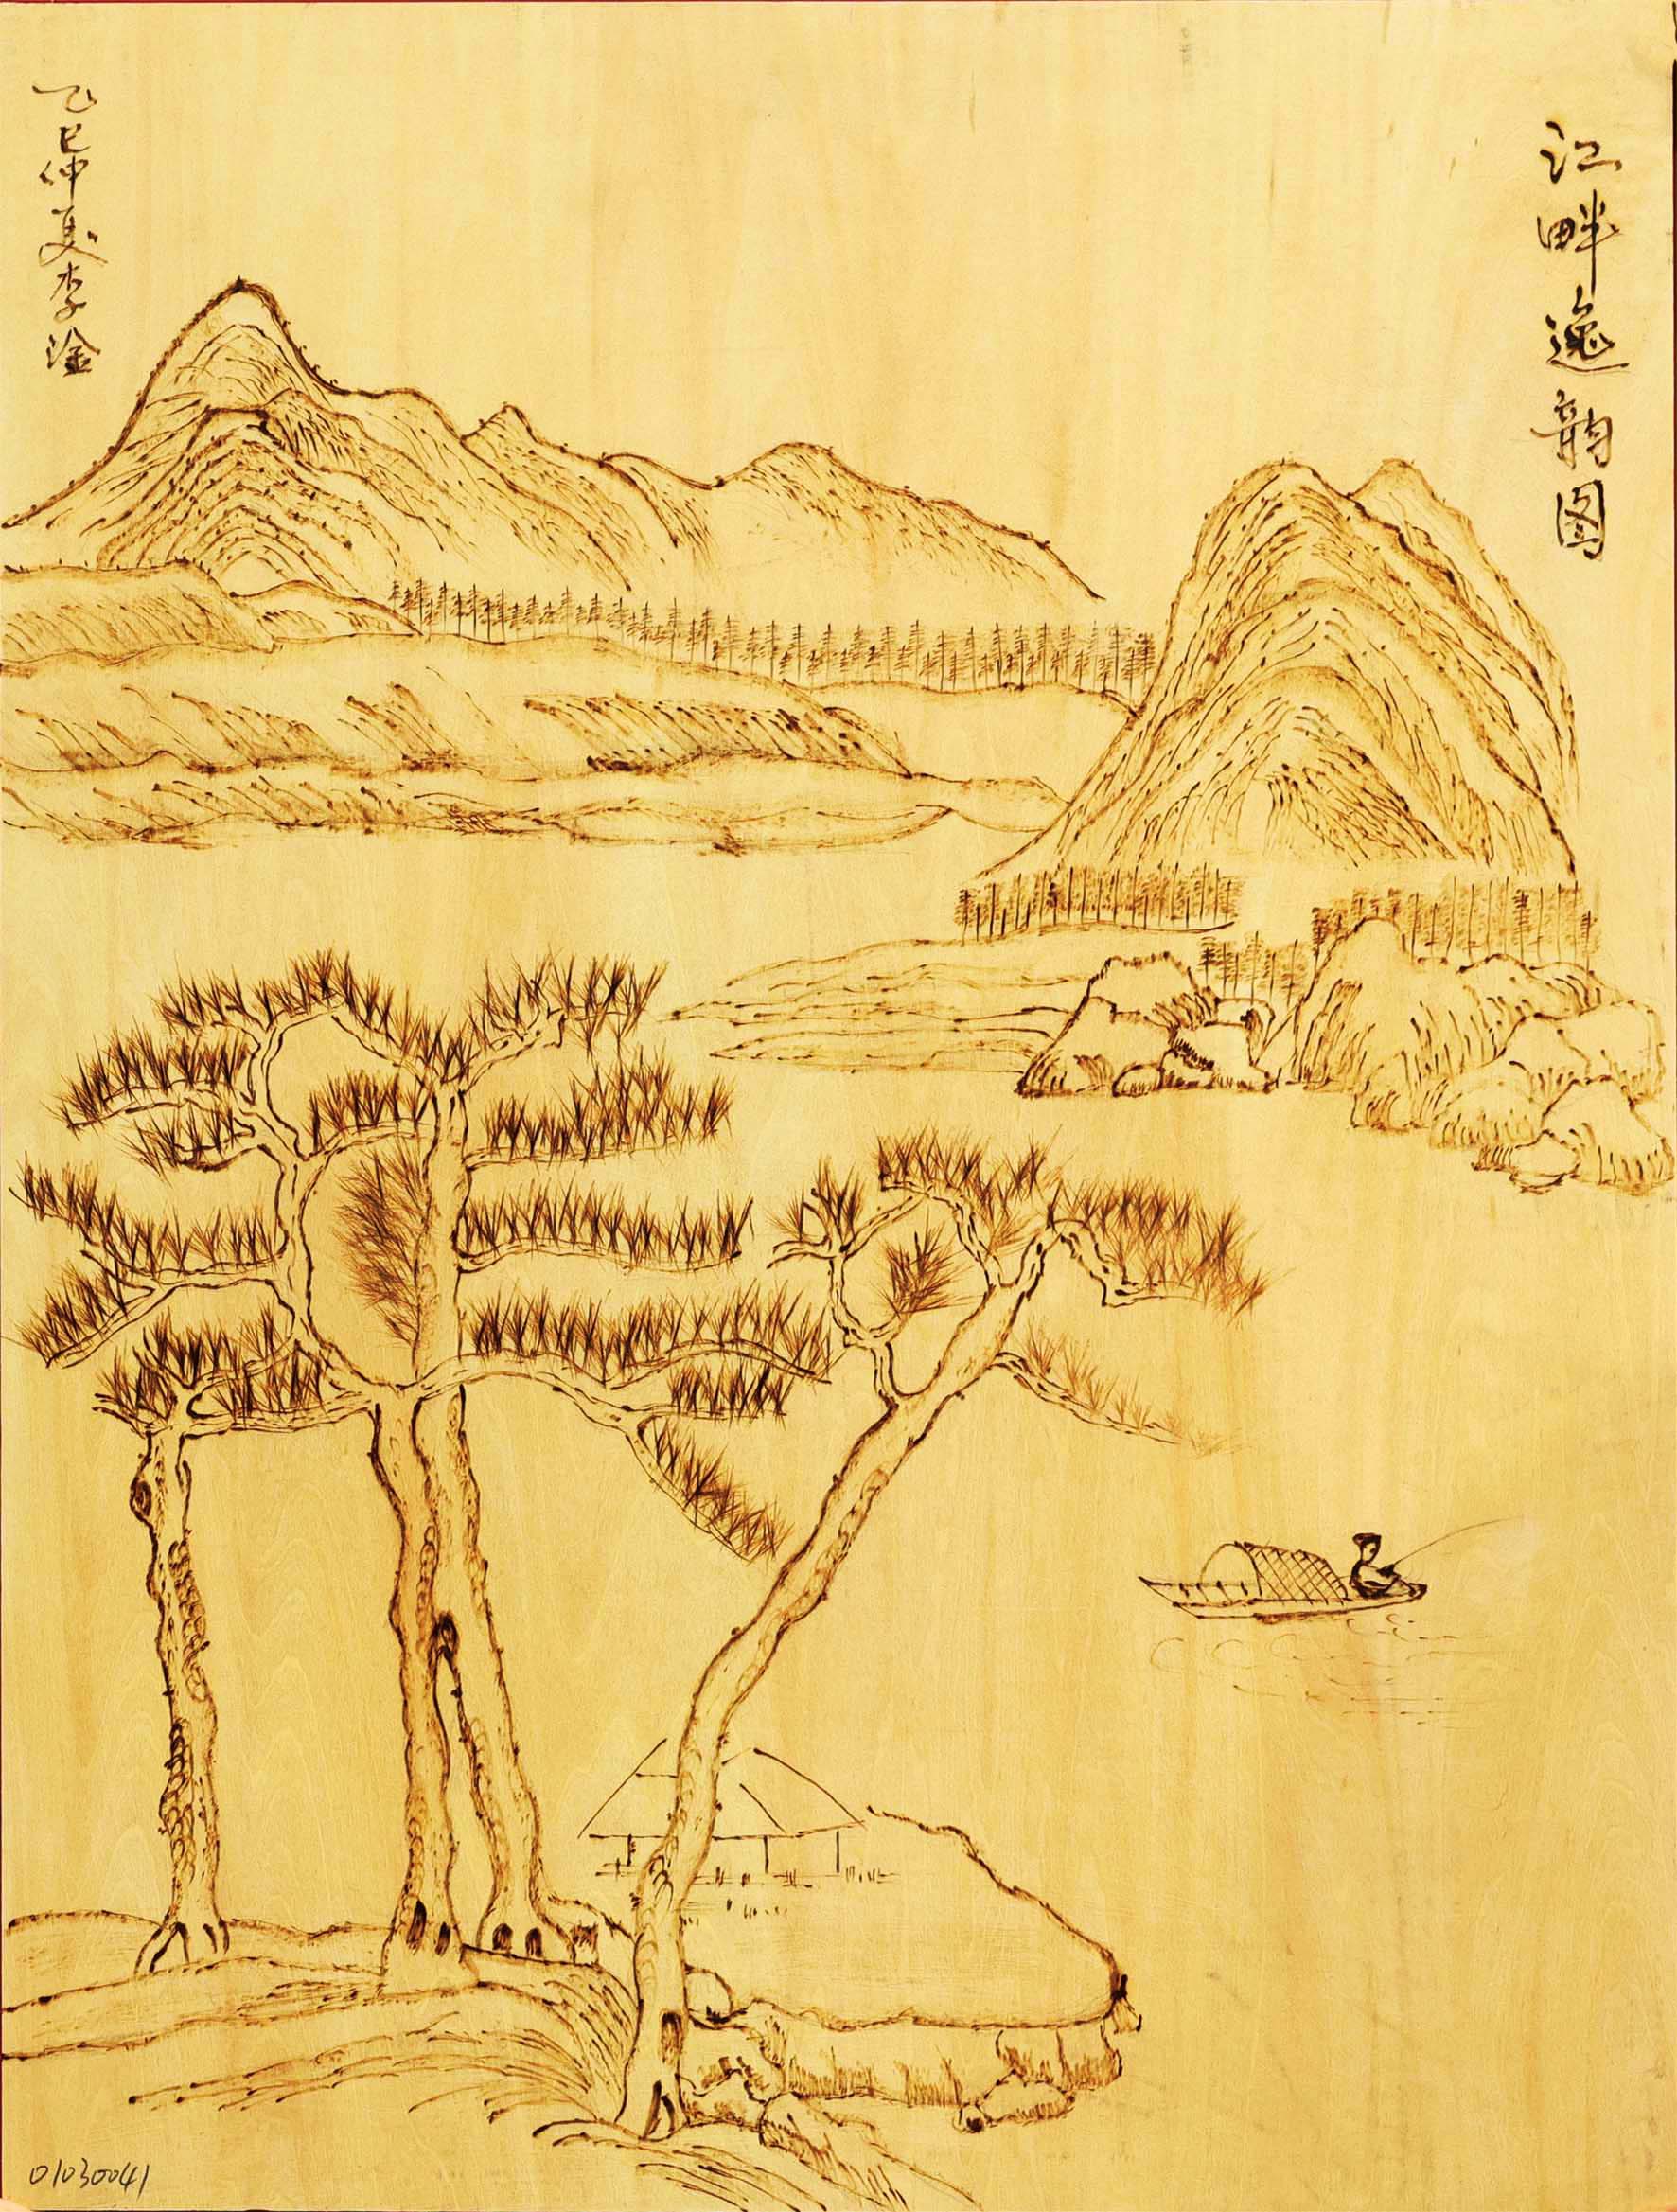 江畔逸韵图
乙巳仲夏李淦
01030041